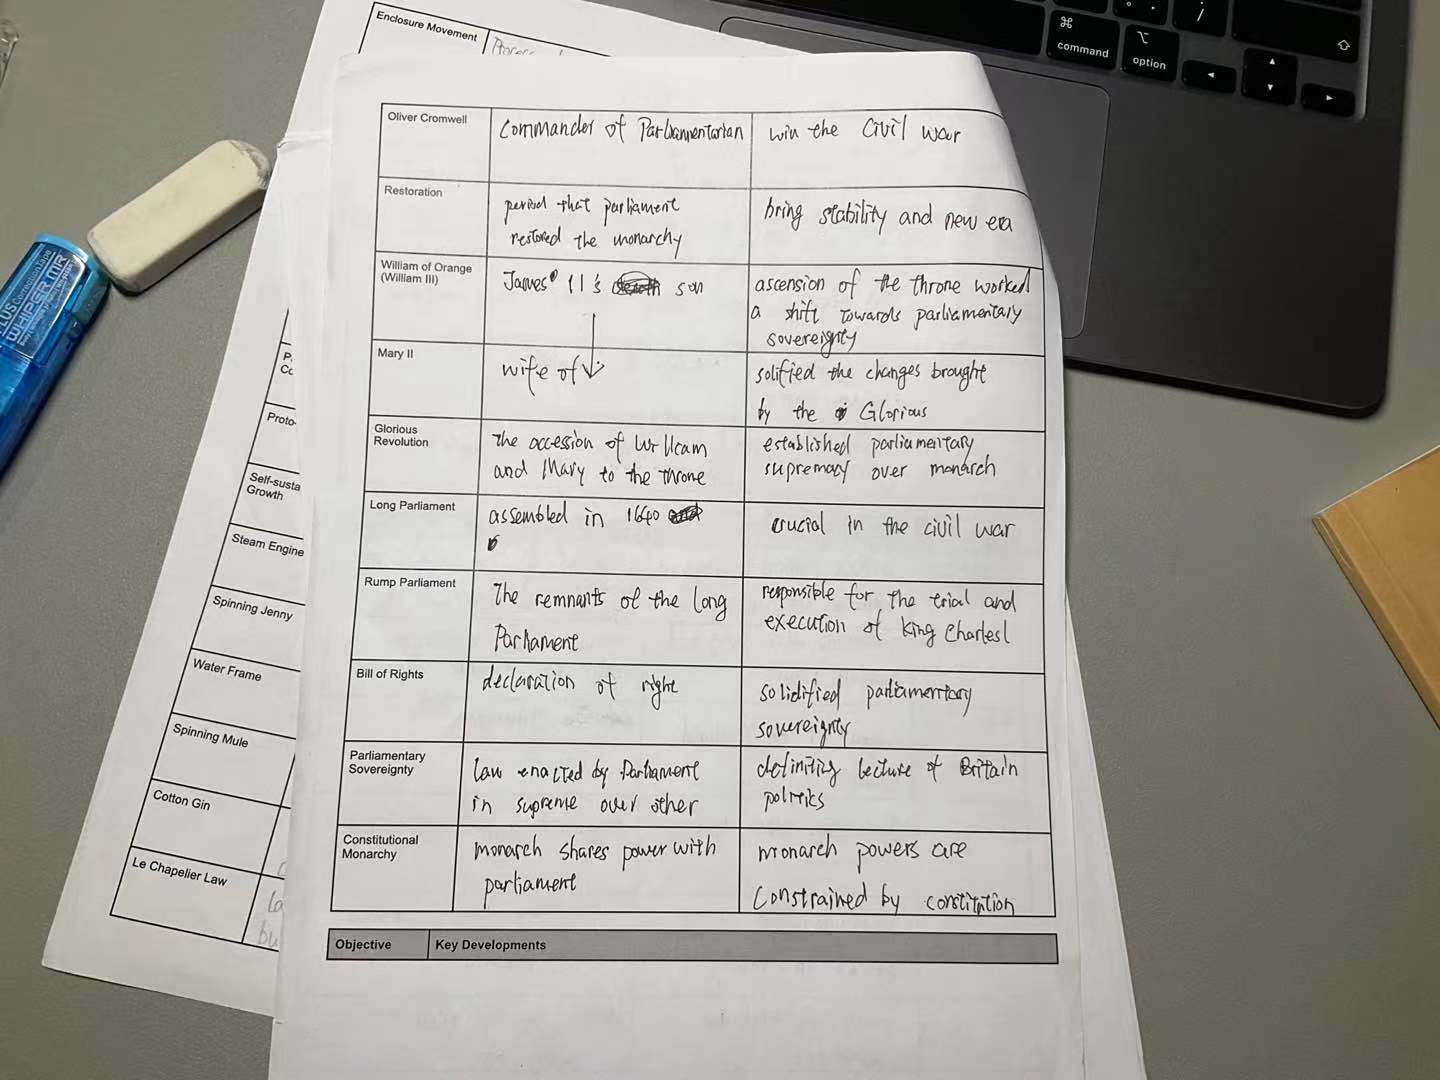 Enclosure Movement
Oliver Cromwell
Commander of Parliamentarian
win the Civil war
Restoration
period that parliament
restored the monarchy
bring stability and new era
William of Orange
(William III)
James' II's son
ascension of the throne worked
a shift towards parliamentary
sovereignty
Mary II
wife of
solified the changes brought
by the Glorious
Glorious
Revolution
the accession of William
and Mary to the throne
established parliamentary
supremacy over monarch
Long Parliament
assembled in 1640
crucial in the civil war
Rump Parliament
The remnants of the long
Parliament
responsible for the trial and
execution of King Charles I
Bill of Rights
declaration of right
solidified parliamentary
sovereignty
Parliamentary
Sovereignty
law enacted by Parliament
in supreme over other
of Britain
politics
Constitutional
Monarchy
monarch shares power with
parliament
monarch powers are
constrained by constitution
Objective
Key Developments
Proto-
Self-susta
Growth
Steam Engine
Spinning Jenny
Water Frame
Spinning Mule
Cotton Gin
Le Chapelier Law
command
option
PLUS Correction tape
WHIPER MR